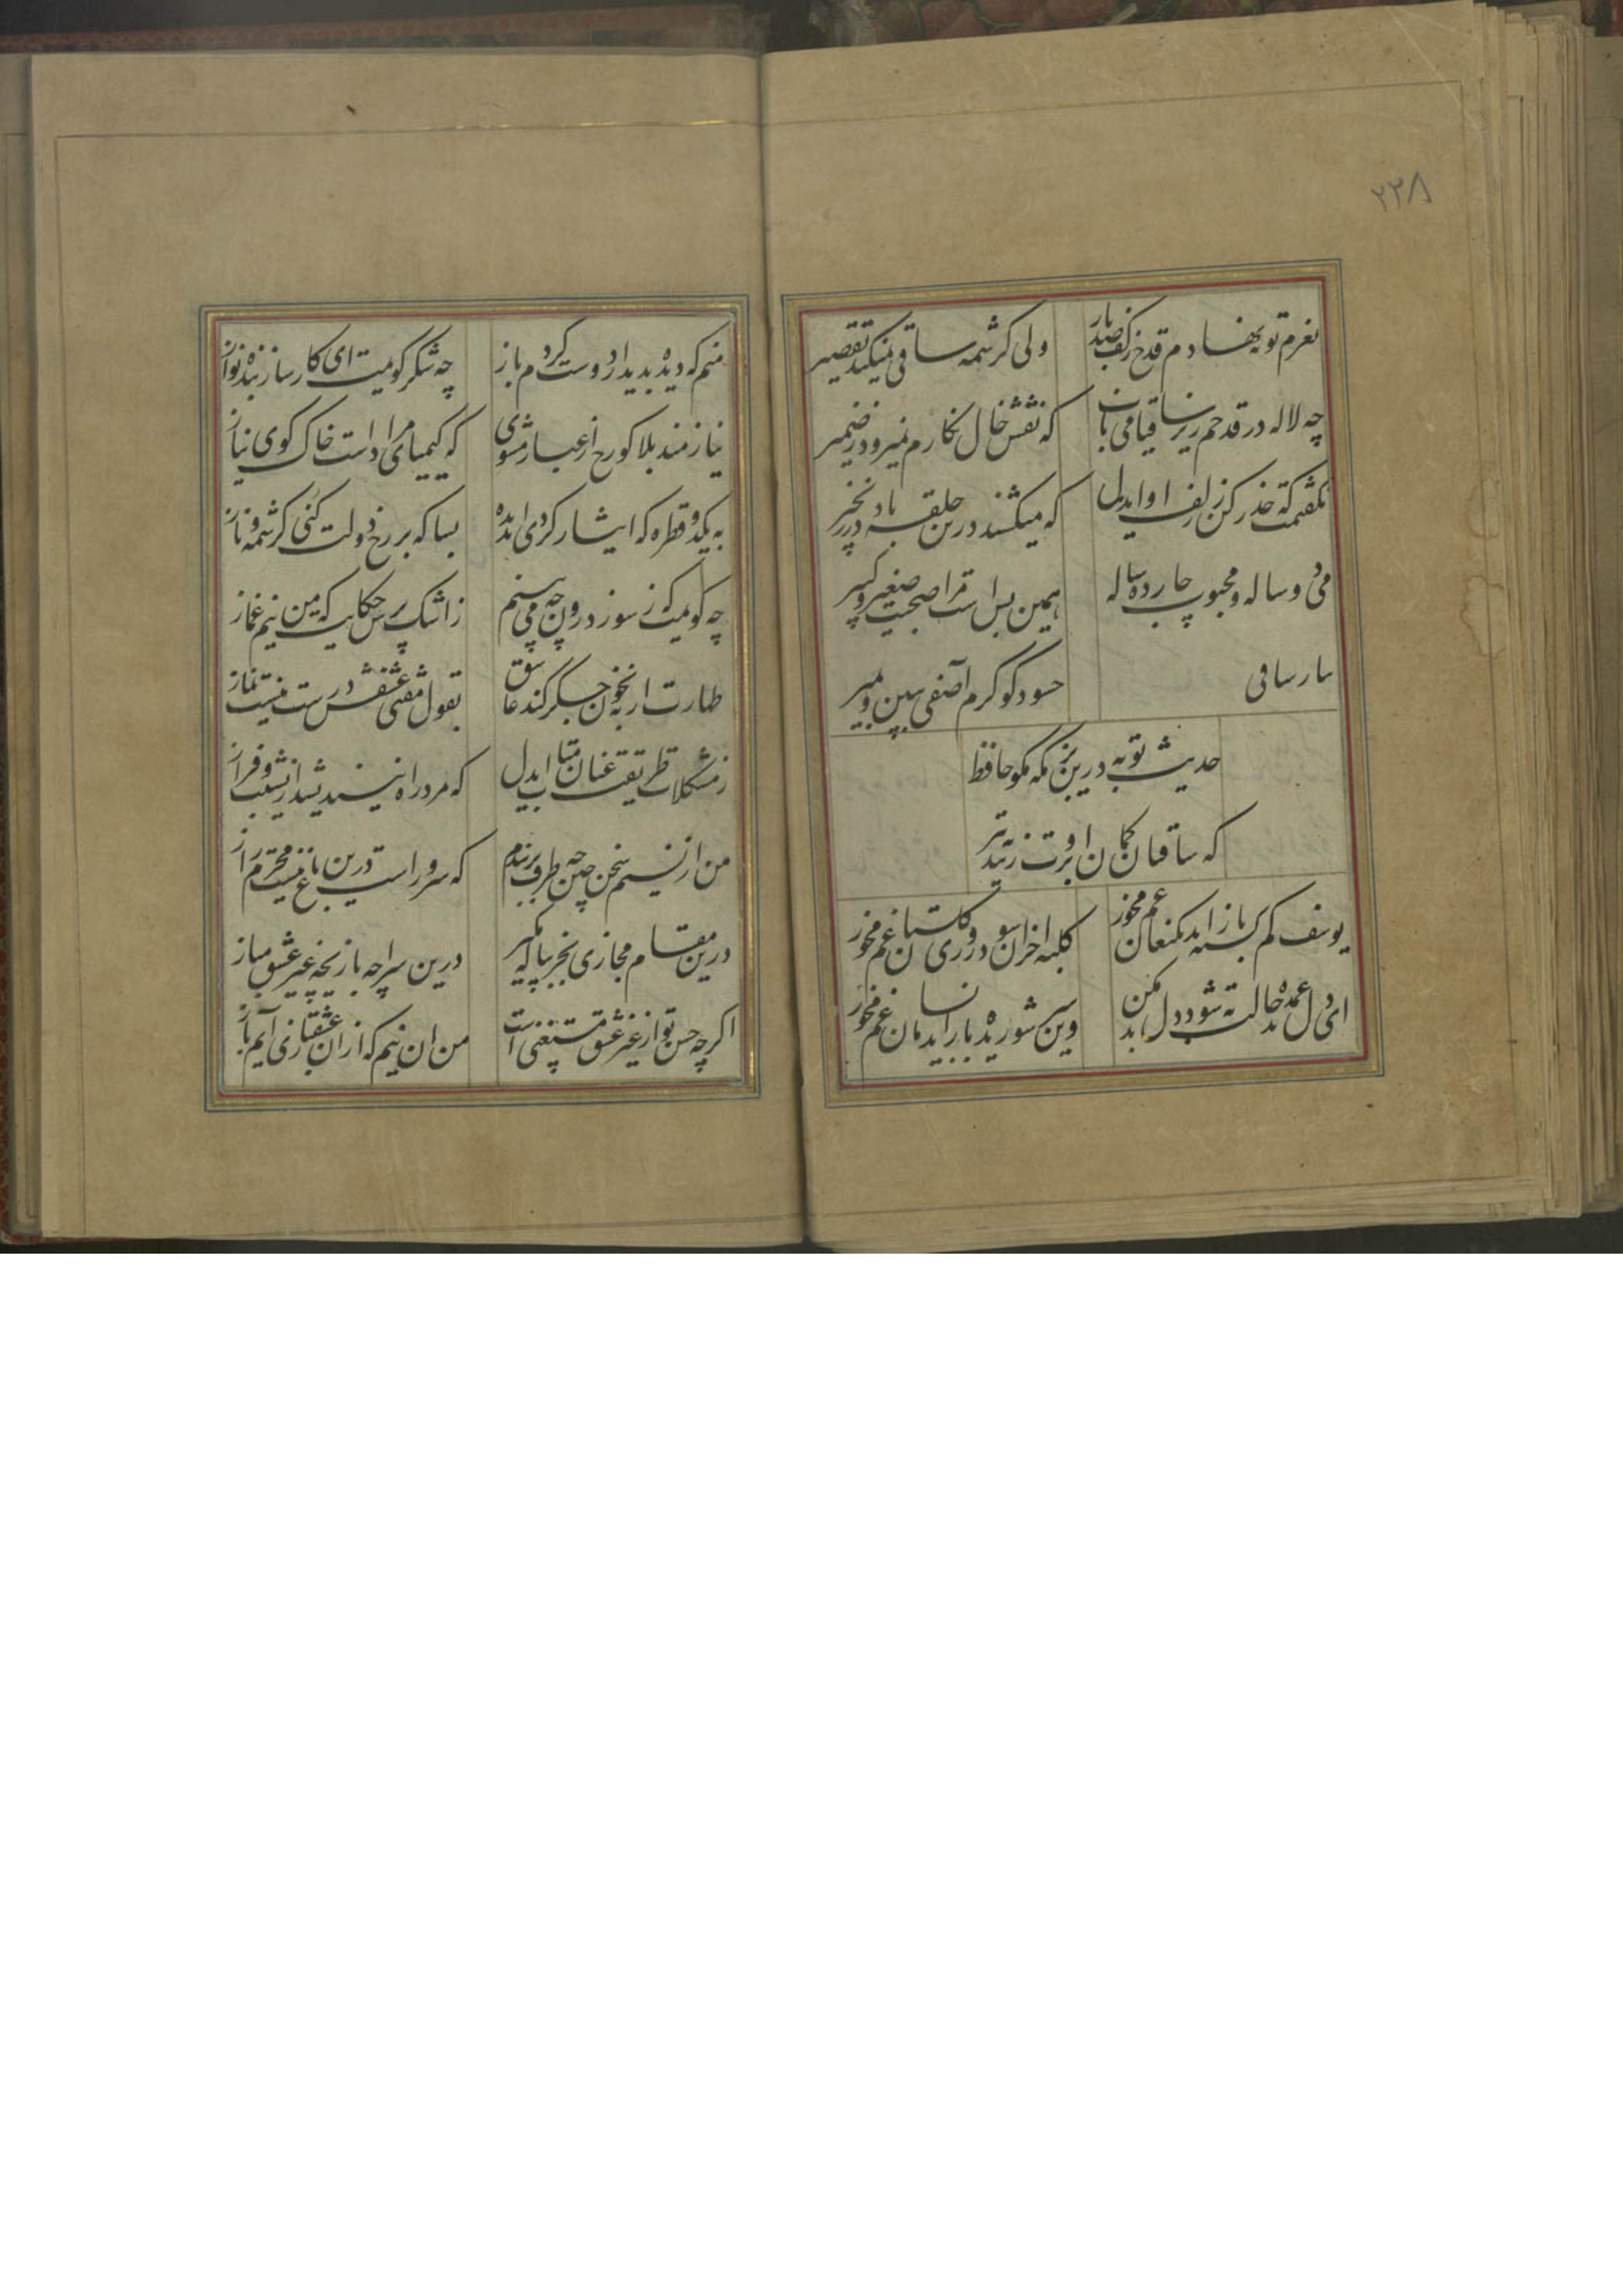 ۲۲۸
بعزم توبه نهادم قدح ز کف صد بار ولی کرشمه ساقی نمیکند تقصیر
چه لاله در قدحم ریز ساقیا می ناب که نقش خال نکارم نمیرود ز ضمیر
نکفتمت که حذر کن ز زلف او ایدل که میکشند درین حلقه باد در زنجیر
می دو ساله و محبوب چارده ساله همین بس است مرا صحبت صغیر و کبیر
بیار ساقی حسود کو کرم آصفی ببین و بمیر
حدیث توبه درین بزمکه مکو حافظ
که ساقیان کمان ابرویت زنند به تیر
یوسف کم کشته باز اید بکنعان غم مخور کلبه احزان شود روزی کلستان غم مخور
ای دل غمدیده حالت به شود دل بد مکن وین سر شوریده باز اید بسامان غم مخور
منم که دیده بدیدار دوست کردم باز چه شکر کویمت ای کارساز بنده نواز
نیازمند بلا کو رخ از غبار مشوی که کیمیای مراد است خاک کوی نیاز
به یکدو قطره که ایثار کردی ایدیده بسا که بر رخ دولت کنی کرشمه و ناز
چه کویمت که ز سوز درون چه می بینم ز اشک پرس حکایت که من نیم غماز
طهارت ار نه بخون جکر کند عاشق بقول مفتی عشقش درست نیست نماز
ز مشکلات طریقت عنان متاب ایدل که مرد راه نیندیشد از نشیب و فراز
من از نسیم سخن چین چه طرف بربندم که سرو راست درین باغ نیست محرم راز
درین مقام مجازی بجز پیاله مکیر درین سراچه بازیچه غیر عشق مباز
اکرچه حسن تو از غیر عشق مستغنی است من ان نیم که ازان عشقبازی آیم باز